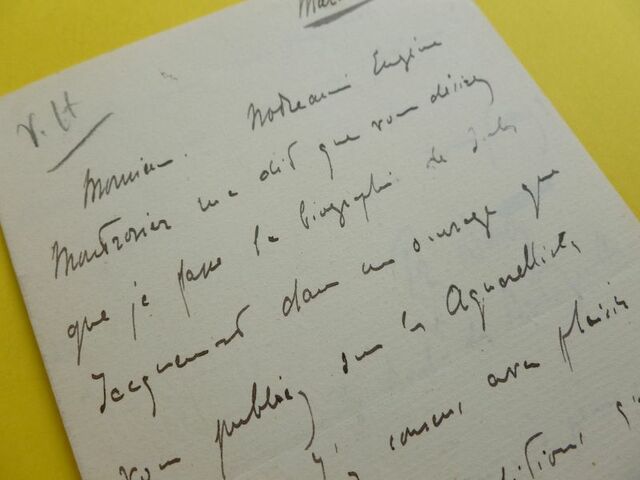 V. H
Monsieur. Notre ami Eugène
Montrosier m'a dit que vous désirez
que je fasse la biographie de Jules
Jacquemart dans un ouvrage que
vous publiez sur les Aquarellistes
J'y consens avec plaisir